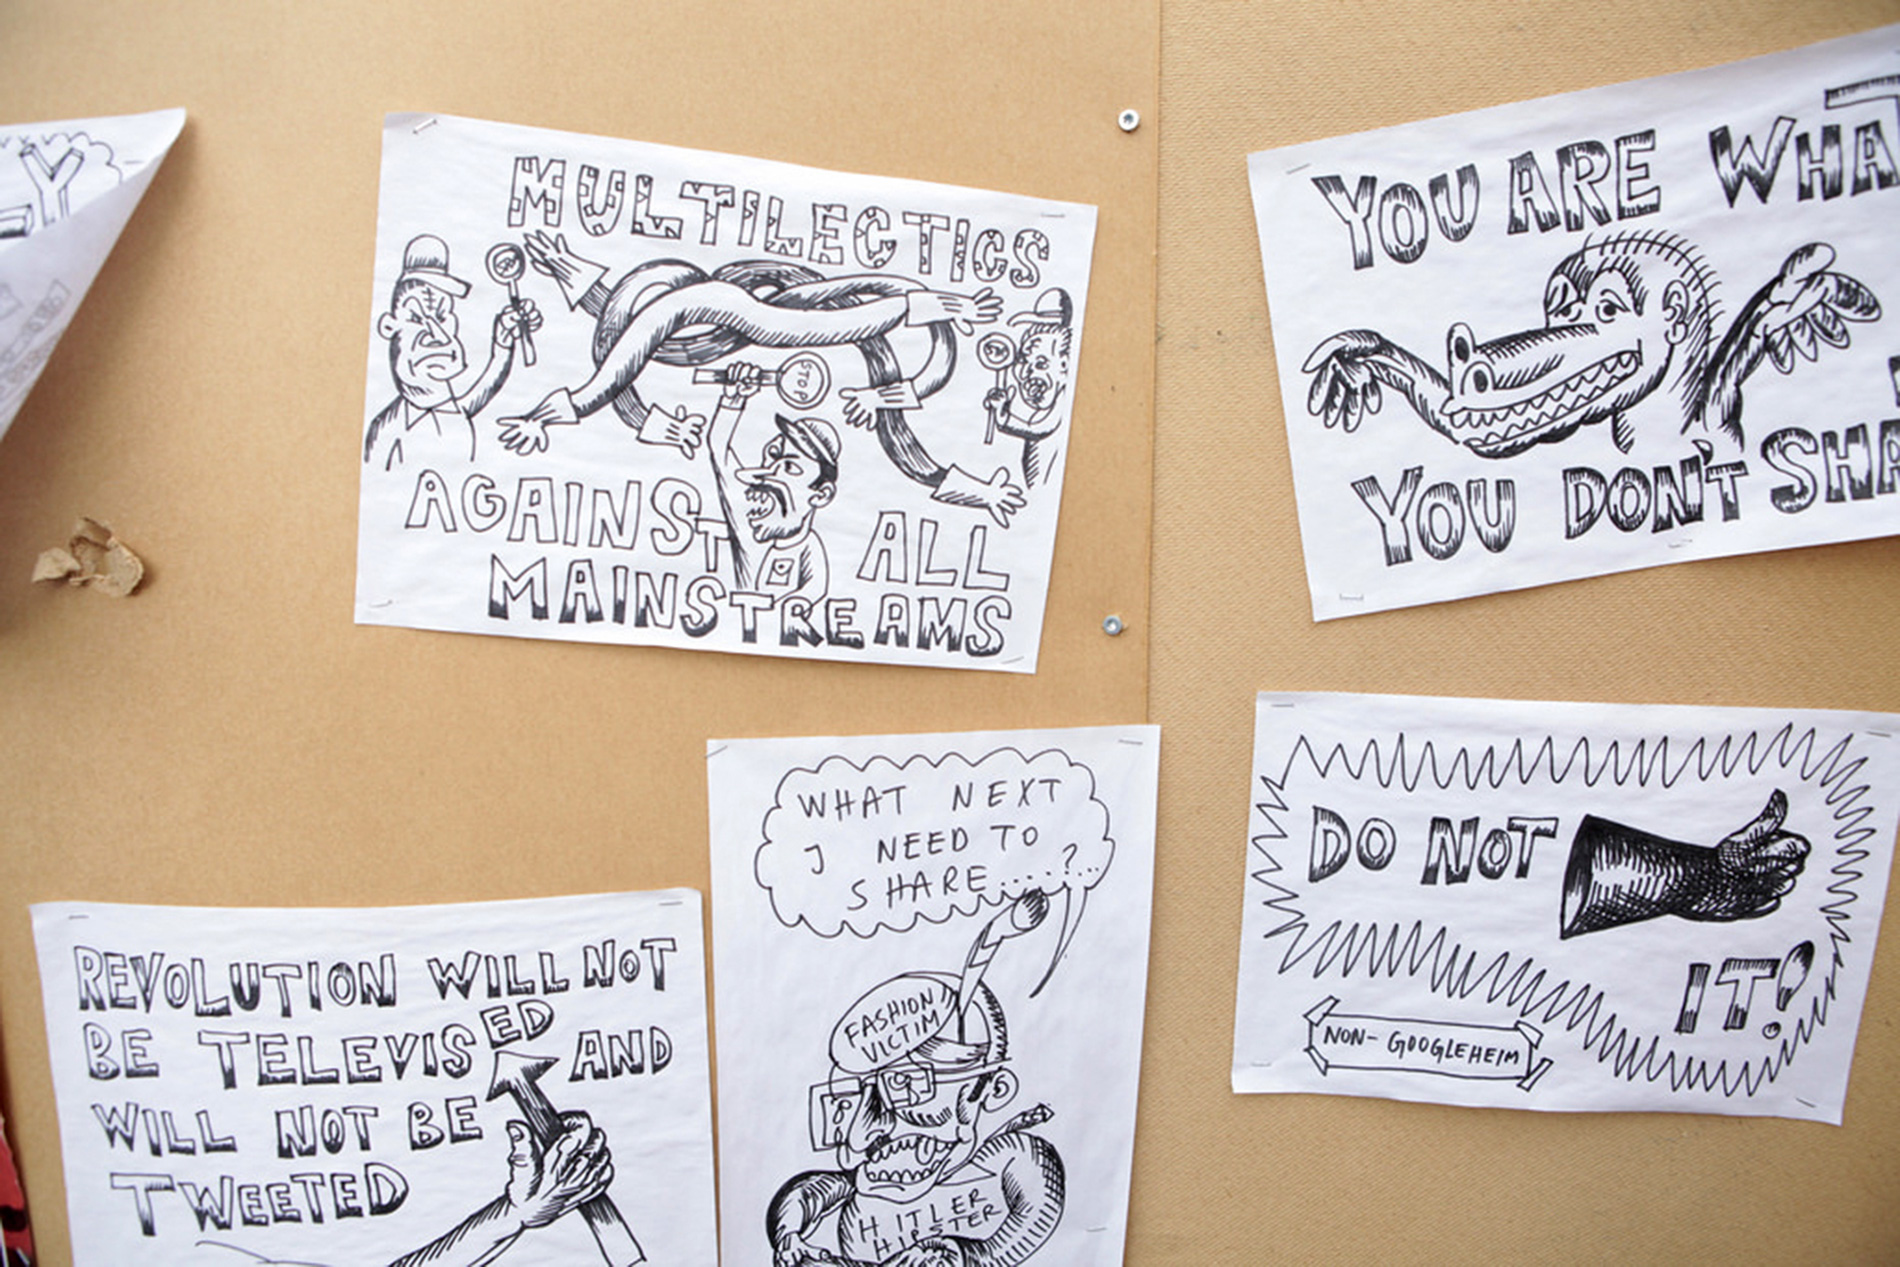 Y
MULTILECTICS
STOP
AGAINST ALL
MAINSTREAMS
YOU ARE WHAT
YOU DON'T SHA
WHAT NEXT
I NEED TO
SHARE....?...
FASHION
VICTIM
HITLER
HIPSTER
DO NOT
IT!
NON-GOOGLEHEIM
REVOLUTION WILL NOT
BE TELEVISED AND
WILL NOT BE
TWEETED